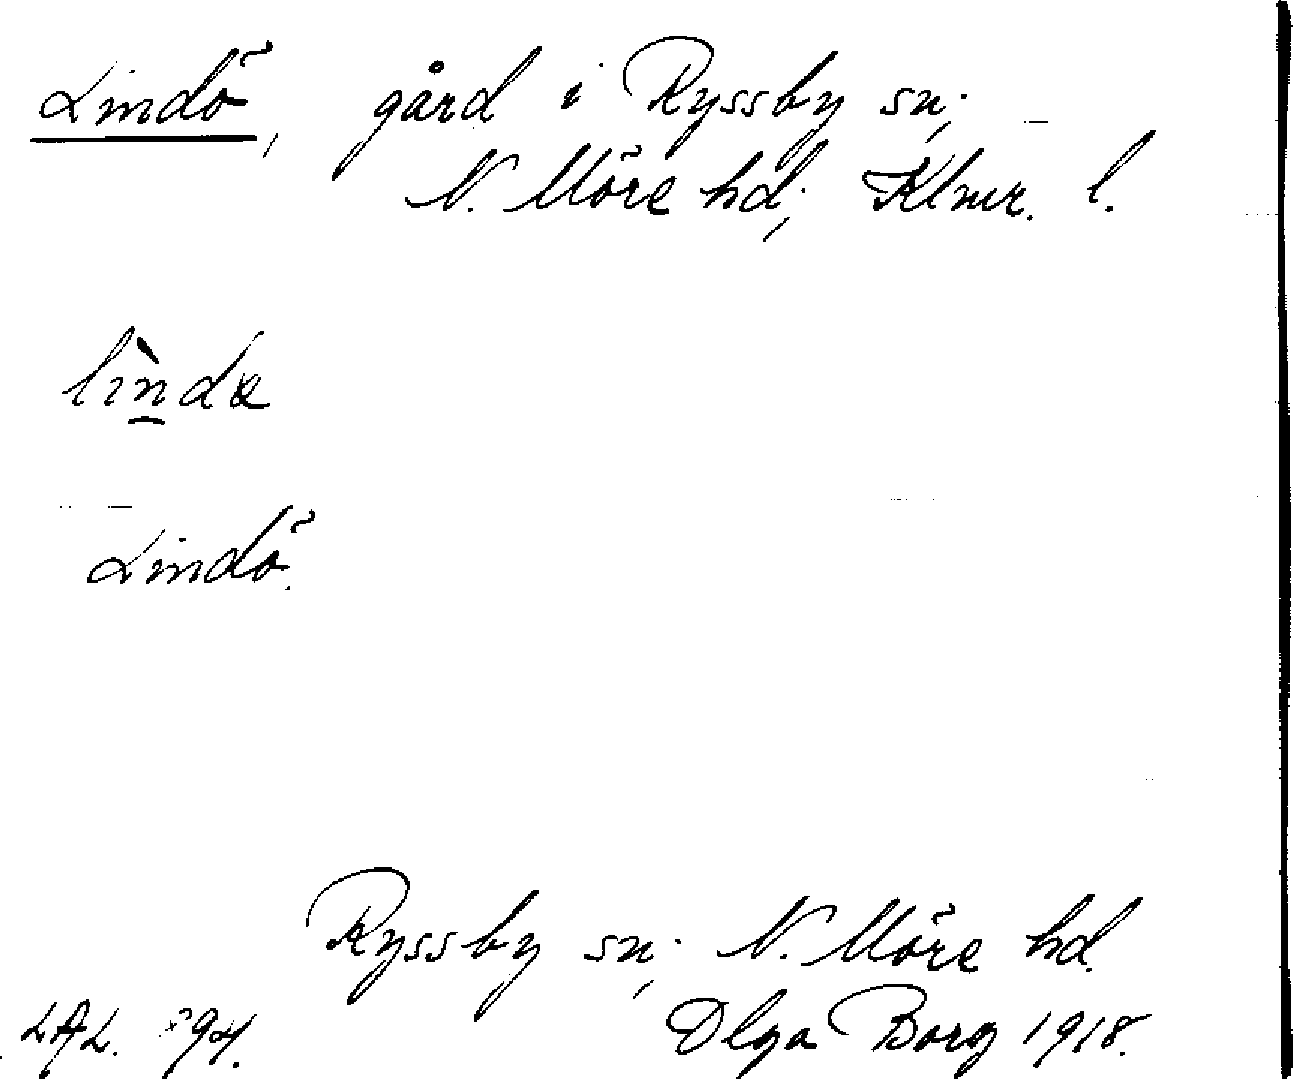 Lindö, gård i Ryssby sn.,
N. Möre hd., Klmr. l.
lìn̠dæ
Lindö.
Ryssby sn., N. Möre hd.
LAL. Olga Borg 1918.